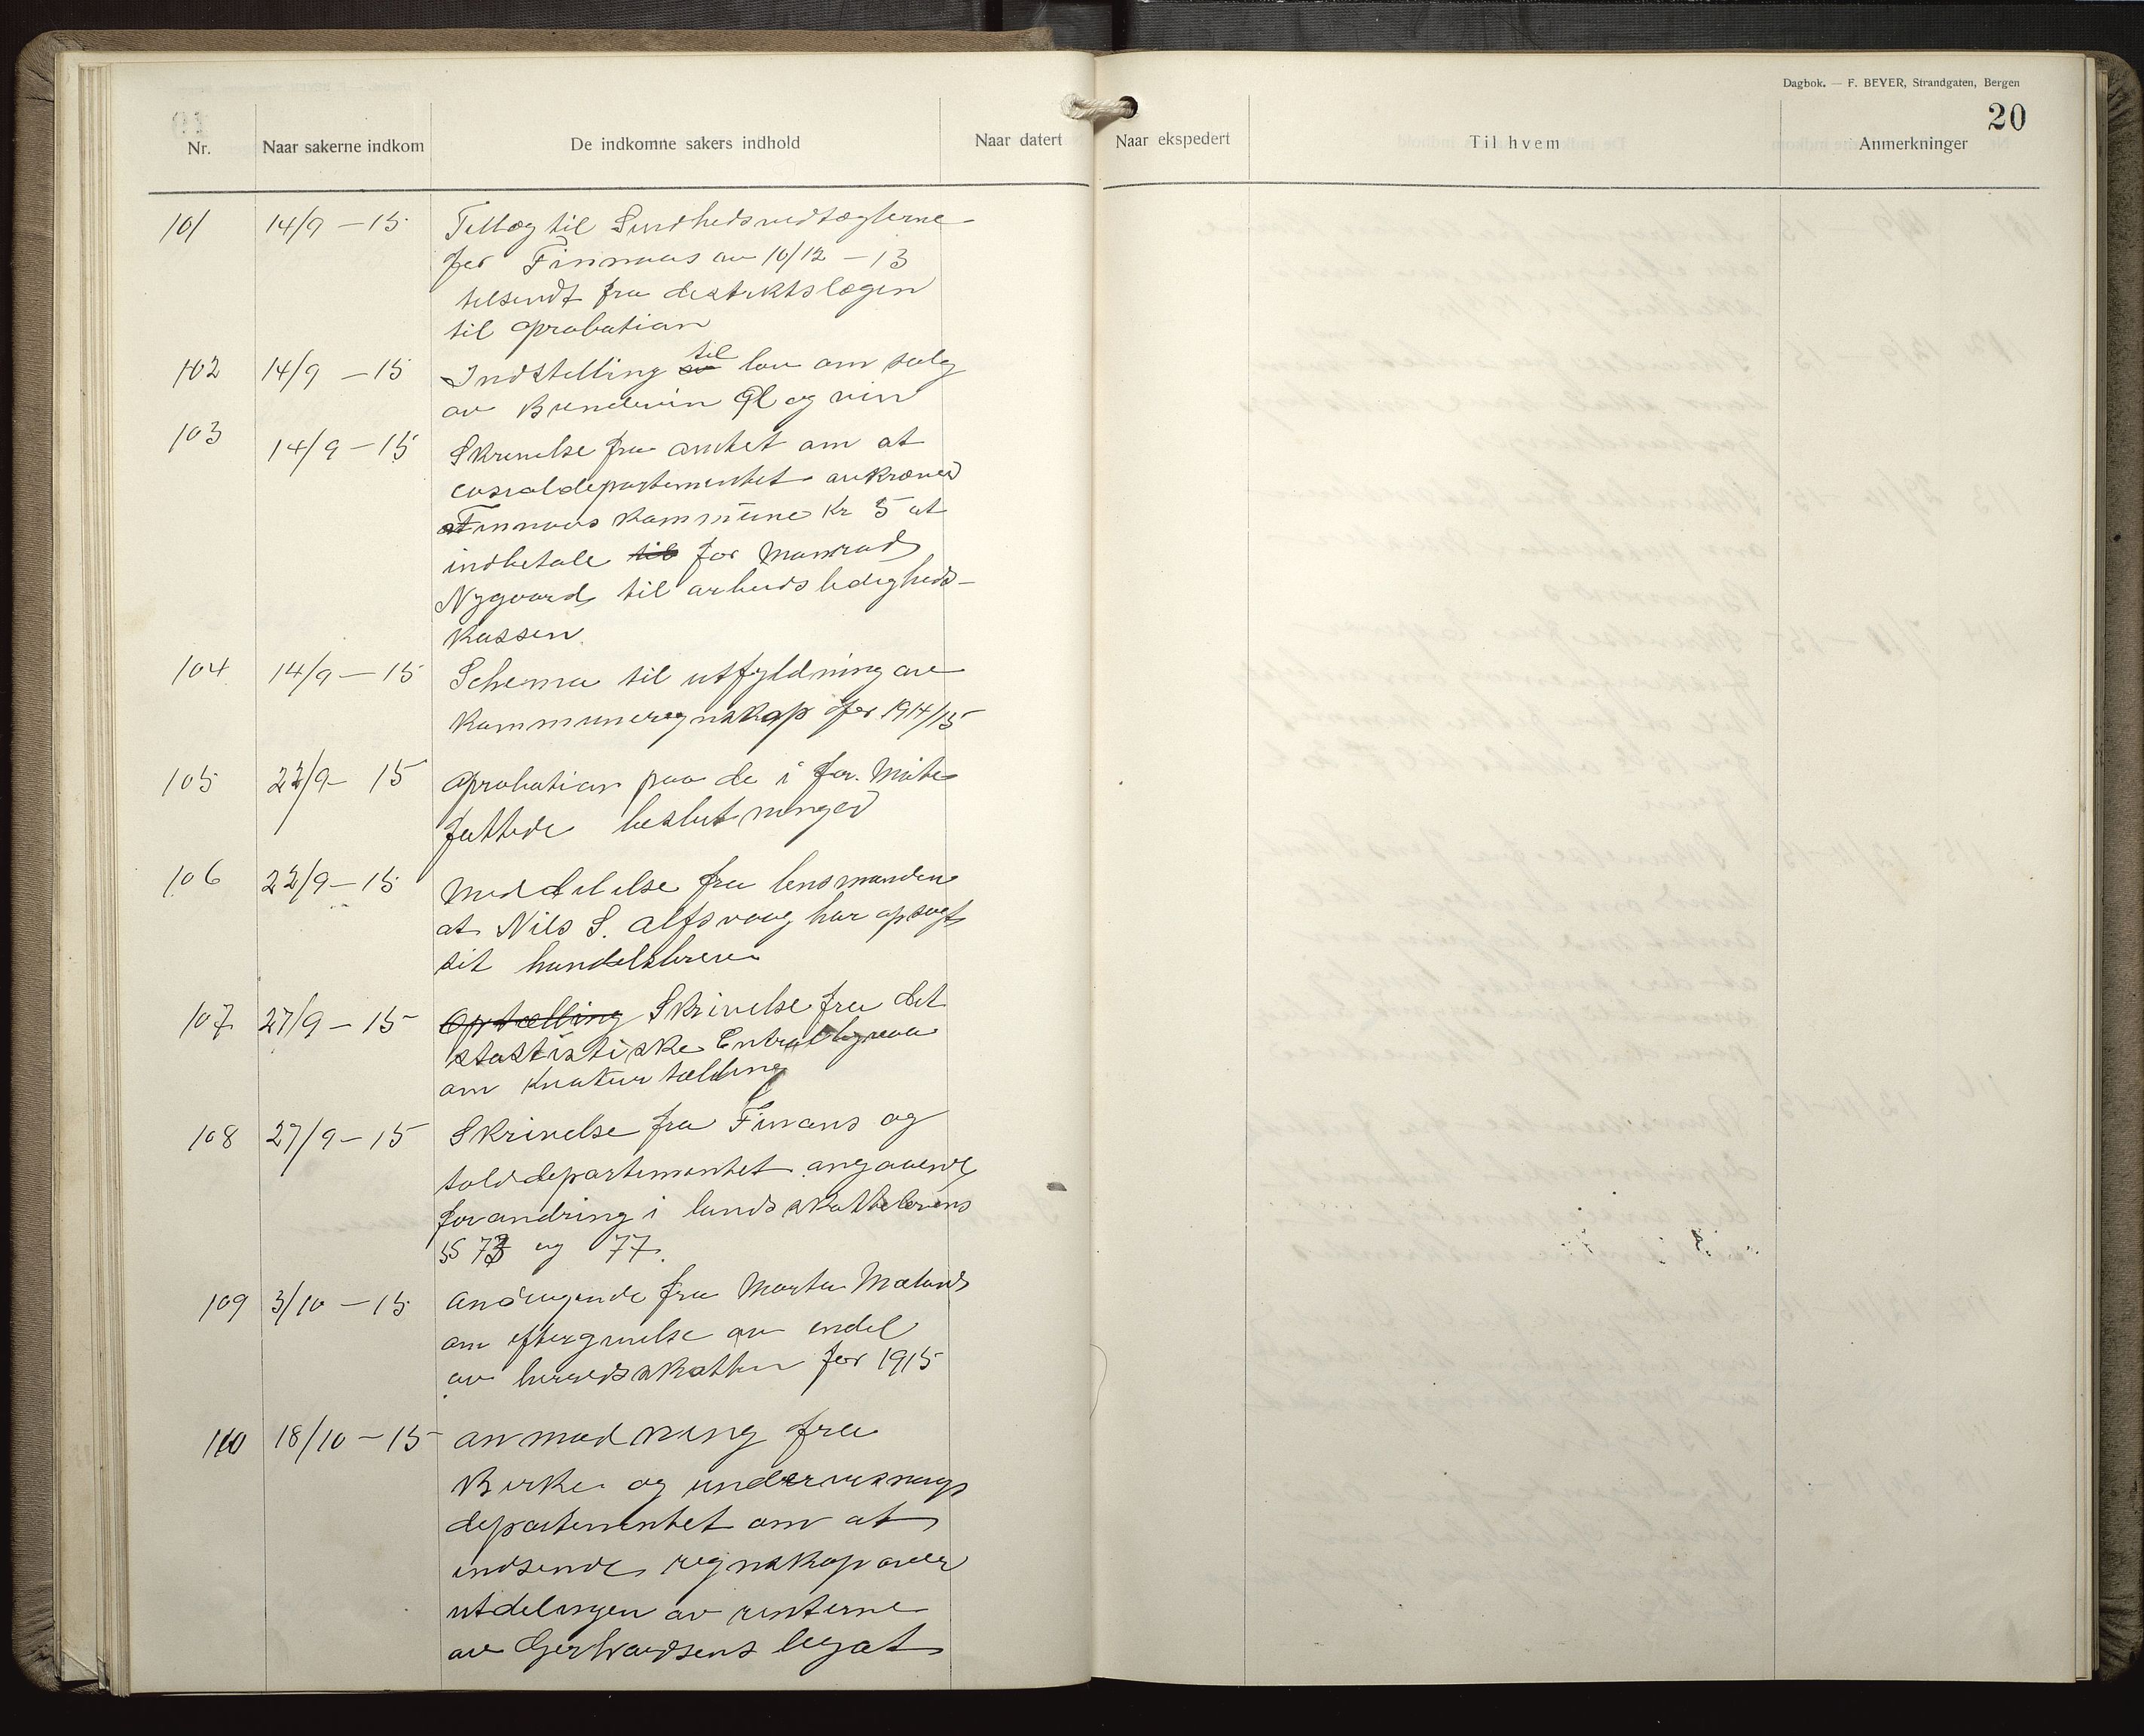 Dagbok. — F. BEYER, Strandgaten, Bergen
20
Nr. Naar sakerne indkom De indkomne sakers indhold Naar datert Naar ekspedert Til hvem Anmerkninger
101 14/9 — 15 Tillæg til Sundhedsvedtægterne
for Finnaas av 10/12 — 13
tilsendt fra destriktslægen
til aprobation
102 14/9 — 15 Indstilling til lov om salg
av Brændevin Øl og vin
103 14/9 — 15 Skrivelse fra amtet om at
departementet avkræver
Finnaas kommune kr 5 at
indbetale til for
Nygaard til arbeidsledigheds-
kassen.
104 14/9 — 15 Schema til utfyldning av
kommuneregnskap for 1914/15
105 22/9 — 15 Aprobation paa de i for. Møte
fattede beslutninger
106 22/9 — 15 Meddelelse fra lensmanden
at Nils S. Alfsvaag har opsagt
sit handelsbrev
107 27/9 — 15 Optælling Skrivelse fra det
statistiske Centralbyraa
om kreaturtælling
108 27/9 — 15 Skrivelse fra Finans og
tolddepartementet angaaende
forandring i landsskattelovens
§§ 73 og 77.
109 3/10 — 15 Andragende fra Marta Mæland
om eftergivelse av endel
av herredsskatten for 1915
110 18/10 — 15 Anmodning fra
Kirke og undervisnings
departementet om at
indsende regnskap over
utdelingen av renterne
av Gerhardsens legat